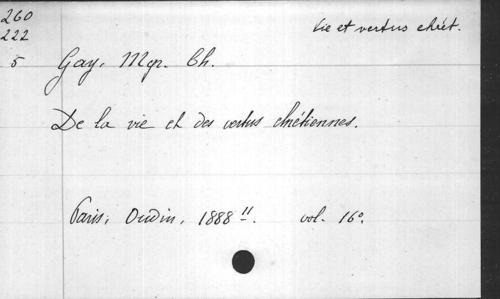 260
222
5
Vie et vertus chrét.
Gay, Mgr. Ch.
De la vie et des vertus chrétiennes.
Paris, Oudin, 1888 11. vol. 16°.